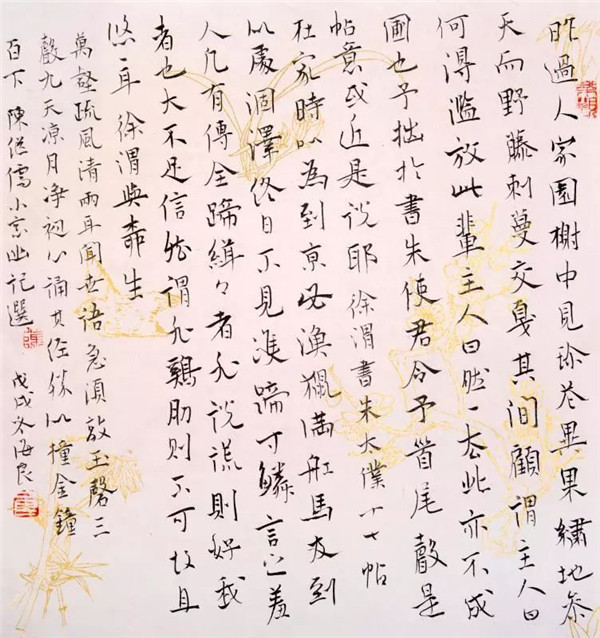 昨過人家園榭中見珍花異果繡地參
天而野藤刺蔓交戛其間顧謂主人曰
何得濫放此輩主人曰然一去此亦不成
圃也予拙於書朱使君令予首尾殿是
帖意或近是說耶 徐渭書朱太僕十七帖
在家時以為到京必漁獵滿舡馬及到
似處涸澤終日不見隻蹄寸鱗言之羞
人凡有傳金蹄緝々者非說謊則好我
者也大不足信然謂非雞肋則不可故且
悠々耳 徐渭與柳生
萬壑疏風清兩耳聞世語急須敲玉磬三
聲九天涼月淨初心誦其經勝似撞金鐘
百下 陳繼儒小窗幽記選 戊戌冬海良